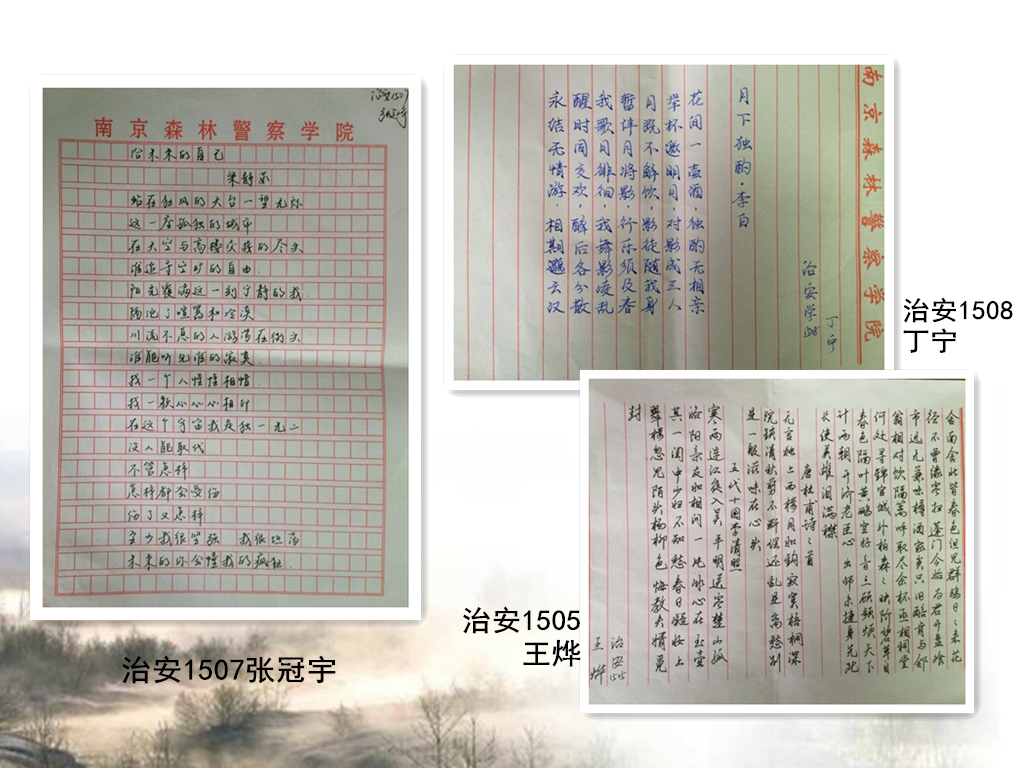 治安1507
张冠宇
南京森林警察学院
给未来的自己
梁静茹
站在狂风的天台一望无际
这一座孤独的城市
在天空与高楼交接的尽头
谁追寻空旷的自由
阳光覆盖这一刻宁静的我
隔绝了喧嚣和冷漠
川流不息的人游荡在街头
谁能听见谁的寂寞
找一个人惺惺相惜
找一颗心心心相印
在这个宇宙我是独一无二
没人能取代
不管怎样
怎样都会受伤
伤了又怎样
至少我很坚强 我很坦荡
未来的你会懂我的疯狂
治安1507张冠宇
南京森林警察学院
治安学1508
丁宁
月下独酌·李白
花间一壶酒,独酌无相亲
举杯邀明月,对影成三人
月既不解饮,影徒随我身
暂伴月将影,行乐须及春
我歌月徘徊,我舞影凌乱
醒时同交欢,醉后各分散
永结无情游,相期邈云汉
治安1508
丁宁
舍南舍北皆春色但见群鸥日日来花
径不曾缘客扫蓬门今始为君开盘飧
市远无兼味樽酒家贫只旧醅肯与邻
翁相对饮隔篱呼取尽余杯丞相祠堂
何处寻锦官城外柏森森映阶碧草自
春色隔叶黄鹂空好音三顾频烦天下
计两朝开济老臣心出师未捷身先死
长使英雄泪满襟
唐杜甫诗二首
无言独上西楼月如钩寂寞梧桐深
院锁清秋剪不断理还乱是离愁别
是一般滋味在心头
五代十国李清照
寒雨连江夜入吴平明送客楚山孤
洛阳亲友如相问一片冰心在玉壶
其一闺中少妇不知愁春日凝妆上
翠楼忽见陌头杨柳色悔教夫婿觅
封
治安1505
王烨
治安1505
王烨